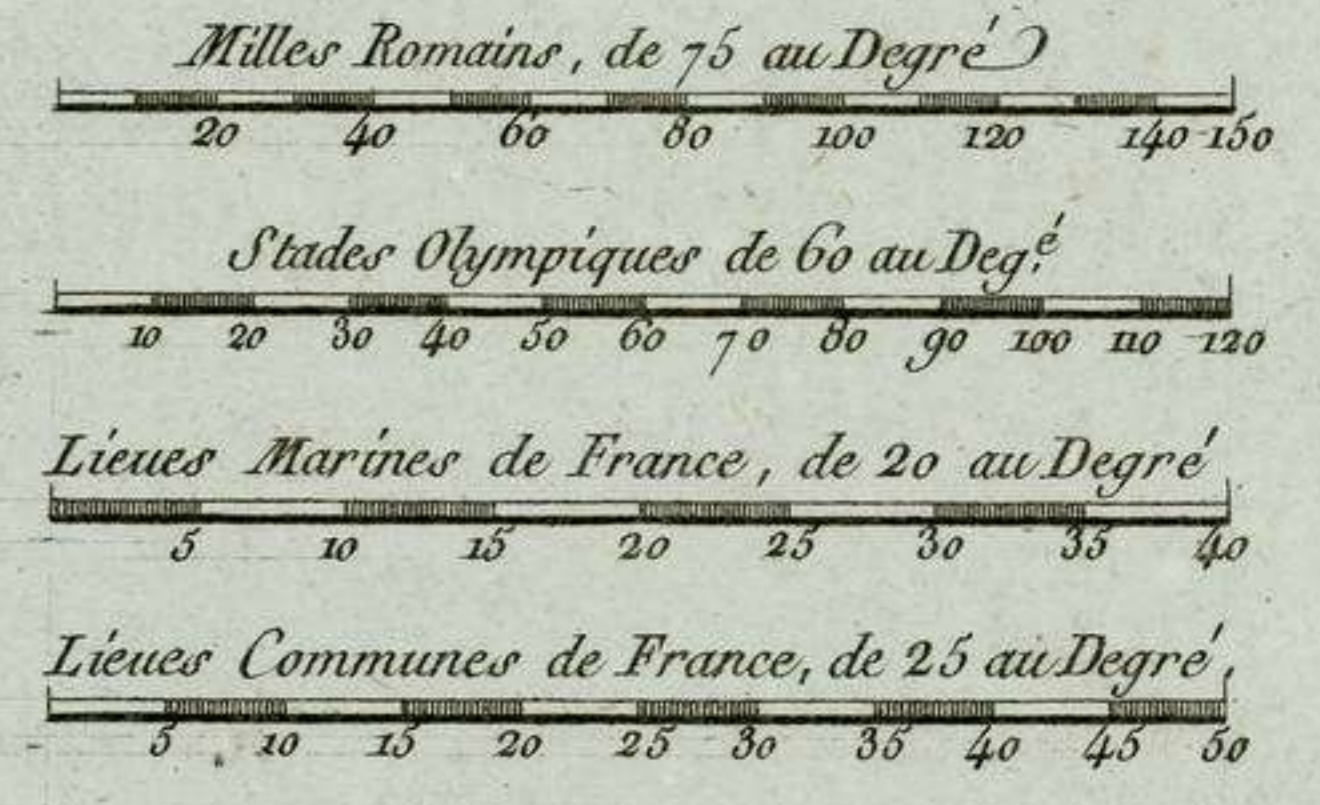 Milles Romains, de 75 au Degré
20 40 60 80 100 120 140 150
Stades Olympiques de 60 au Deg.é
10 20 30 40 50 60 70 80 90 100 110 120
Lieues Marines de France, de 20 au Degré
5 10 15 20 25 30 35 40
Lieues Communes de France, de 25 au Degré,
5 10 15 20 25 30 35 40 45 50